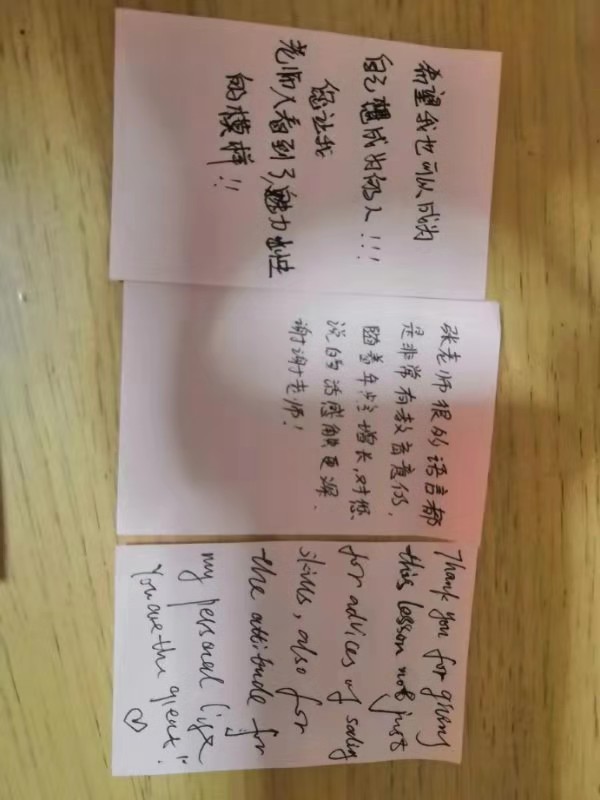 希望我也可以成为
自己想成为的人!!!
您让我
老师看到了魅力女性
的模样!!
张老师很多语言都
是非常有教育意义,
随着年龄增长,对您
说的话感触更深.
谢谢老师!
Thank you for giving
this lesson not just
for advices of saling
skills, also for
the attitude for
my personal life
You are the great!!
♡